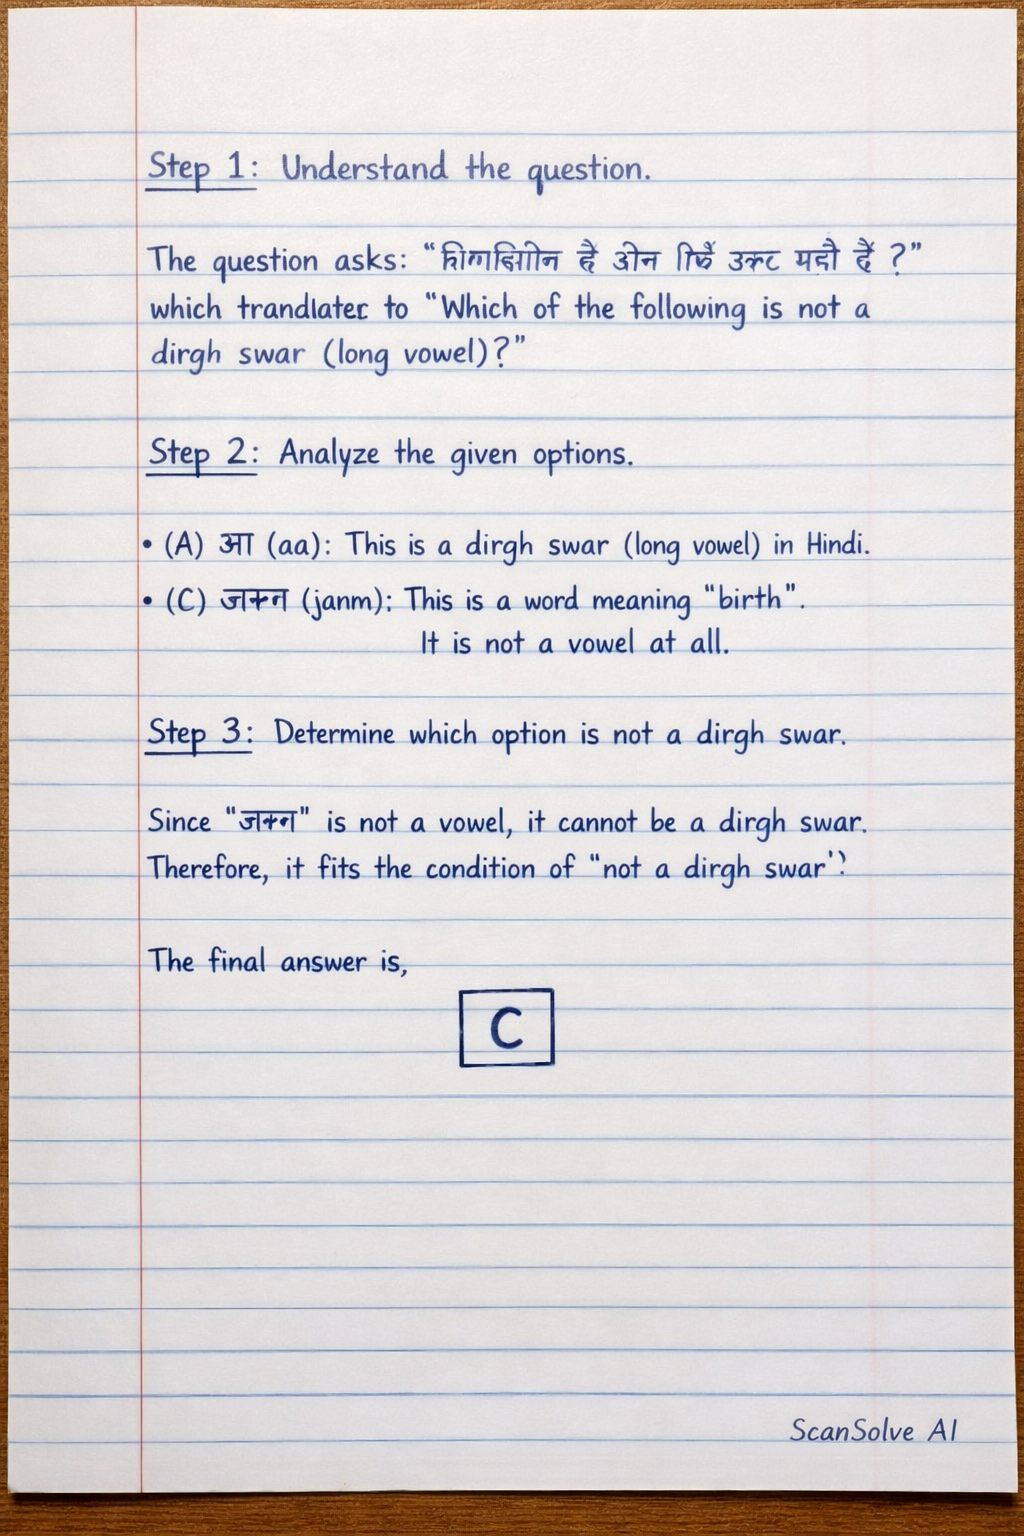 Step 1: Understand the question.
The question asks: " है ?"
which trandlatec to "Which of the following is not a
dirgh swar (long vowel)?"
Step 2: Analyze the given options.
• (A) आ (aa): This is a dirgh swar (long vowel) in Hindi.
• (C) (janm): This is a word meaning "birth".
It is not a vowel at all.
Step 3: Determine which option is not a dirgh swar.
Since "" is not a vowel, it cannot be a dirgh swar.
Therefore, it fits the condition of "not a dirgh swar'?
The final answer is,
C
ScanSolve AI